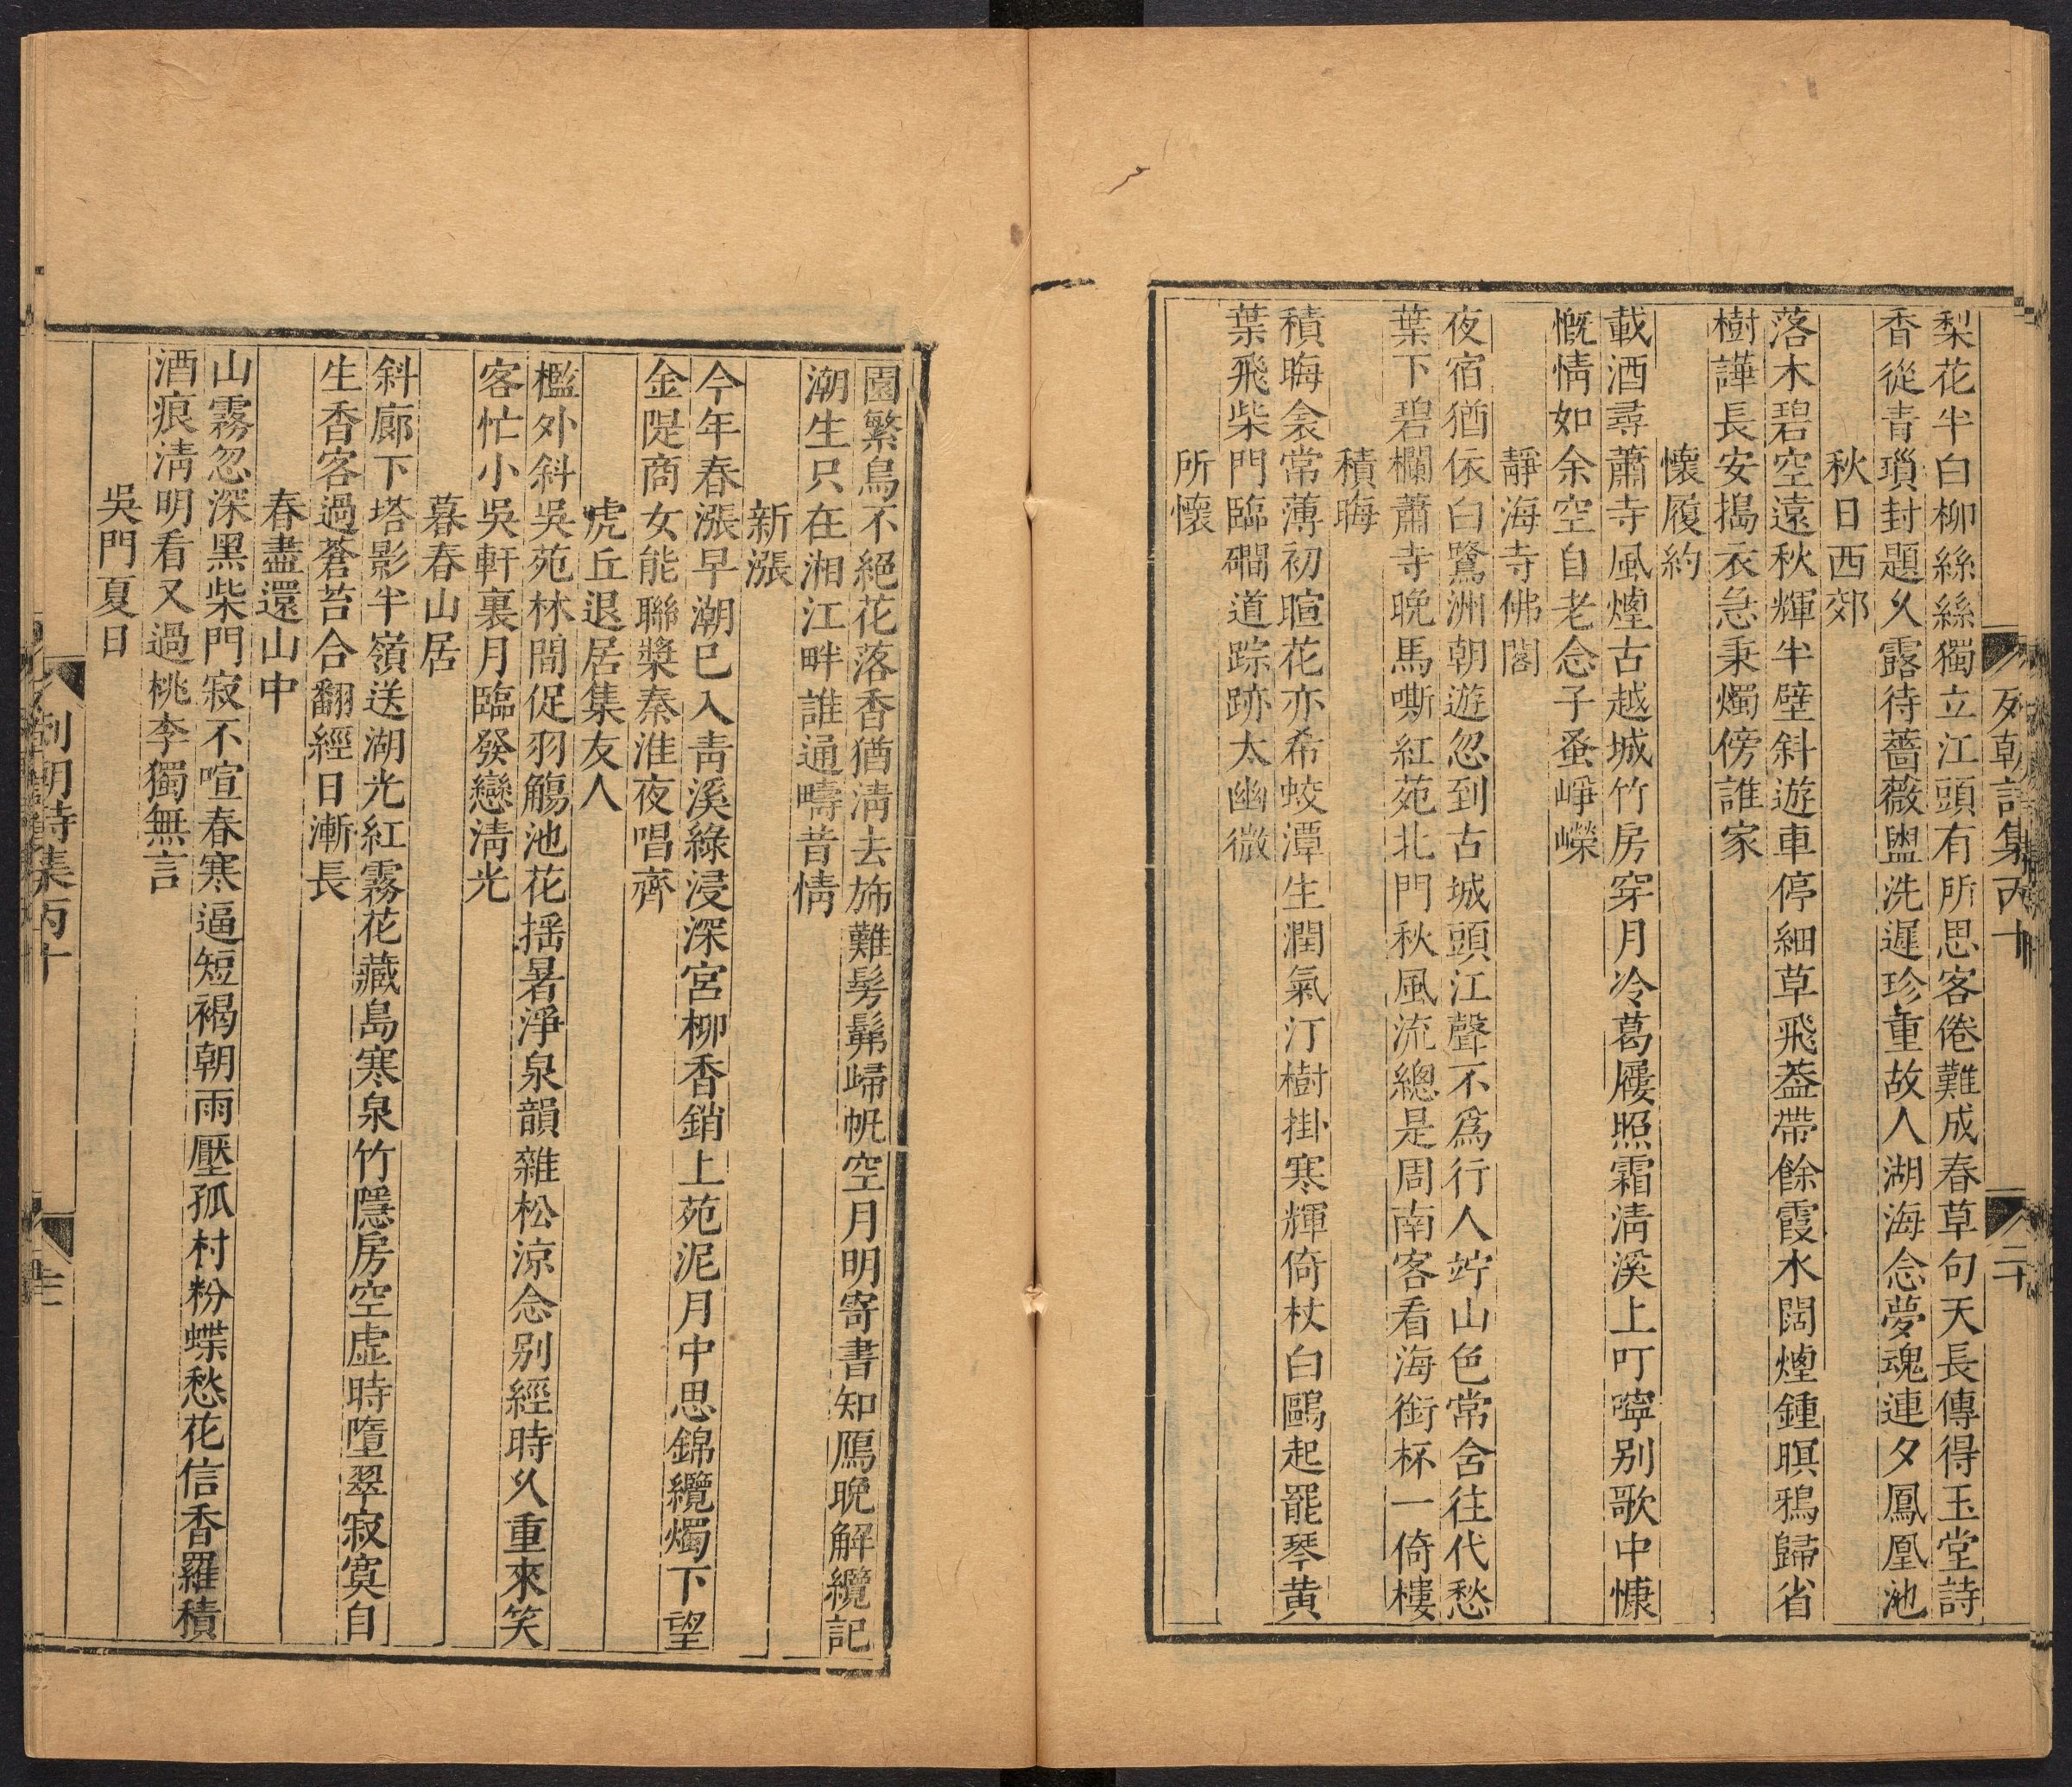 列朝詩集丙十
二十
梨花半白柳絲絲獨立江頭有所思客倦難成春草句天長傳得玉堂詩
香從青瑣封題久露待薔薇盥洗遲珍重故人湖海念夢魂連夕鳳凰池
秋日西郊
落木碧空遠秋輝半壁斜遊車停細草飛葢帶餘霞水闊煙鍾暝鴉歸省
樹譁長安搗衣急秉燭傍誰家
懷履約
載酒尋蕭寺風煙古越城竹房穿月冷葛屨照霜淸溪上叮嚀别歌中慷
慨情如余空自老念子蚤崢嶸
靜海寺佛閣
夜宿猶依白鷺洲朝遊忽到古城頭江聲不爲行人竚山色常含往代愁
葉下碧欄蕭寺晩馬嘶紅苑北門秋風流總是周南客看海銜杯一倚樓
積晦
積晦衾常薄初暄花亦希蛟潭生潤氣汀樹掛寒輝倚杖白鷗起罷琴黄
葉飛柴門臨磵道踪跡太幽微
所懷
園繁鳥不絕花落香猶淸去斾難髣髴歸帆空月明寄書知鴈晩解纜記
潮生只在湘江畔誰通疇昔情
新漲
今年春漲早潮已入靑溪綠浸深宮柳香銷上苑泥月中思錦纜燭下望
金隄商女能聯槳秦淮夜唱齊
虎丘退居集友人
檻外斜吳苑林間促羽觴池花揺暑淨泉韻雜松涼念别經時久重來笑
客忙小吳軒裏月臨發戀淸光
暮春山居
斜廊下塔影半嶺送湖光紅霧花藏島寒泉竹隱房空虛時墮翠寂寞自
生香客過蒼苔合翻經日漸長
春盡還山中
山霧忽深黑柴門寂不喧春寒逼短褐朝雨壓孤村粉蝶愁花信香羅積
酒痕淸明看又過桃李獨無言
吳門夏日
列朝詩集丙十